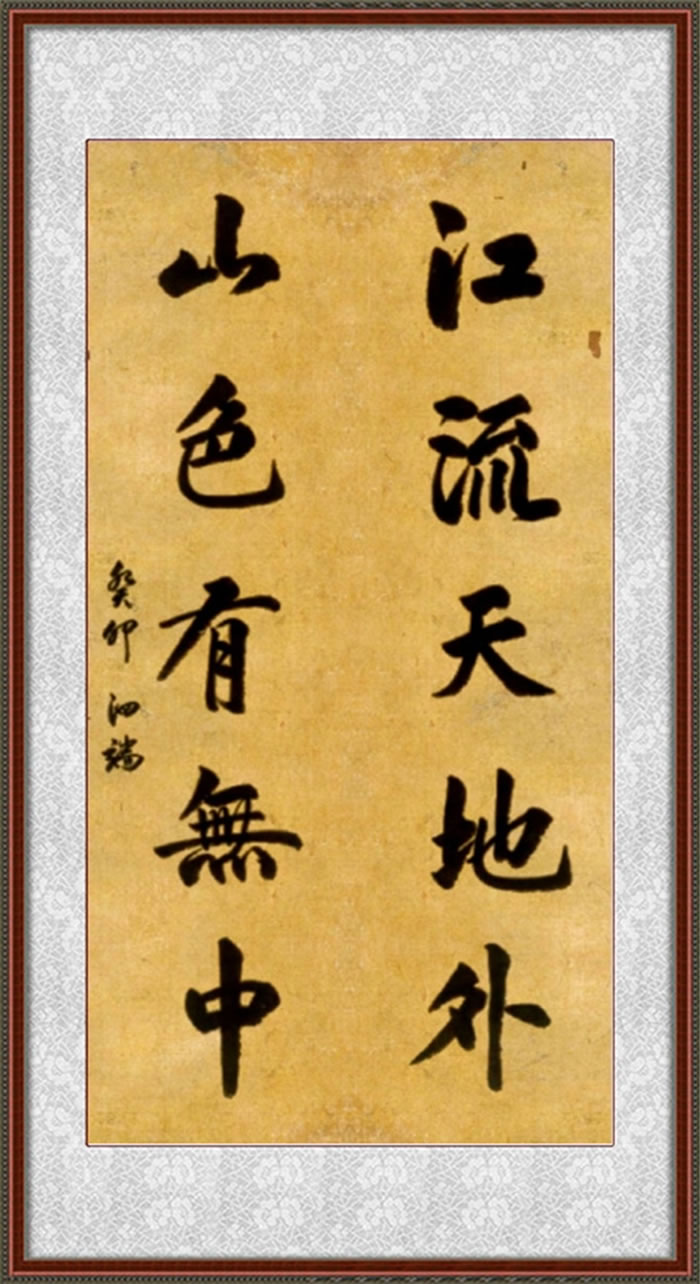 江流天地外
山色有無中
癸卯 泗端